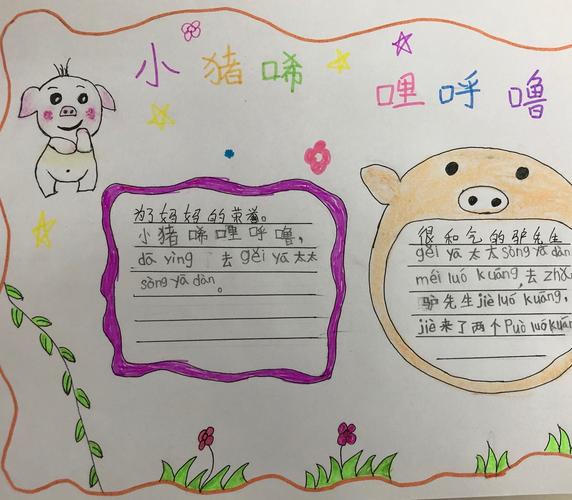 小猪唏
哩呼噜
为了妈妈的荣誉。
小猪唏哩呼噜，
dā yìng 去 gěi yā 太太
sòng yā dàn。
很和气的驴先生
gěi yā 太太 sòng yā dàn
méi luó kuāng，去 zhǎo
驴先生 jiè luó kuāng，
jiè 来了两个 Può luó kuāng